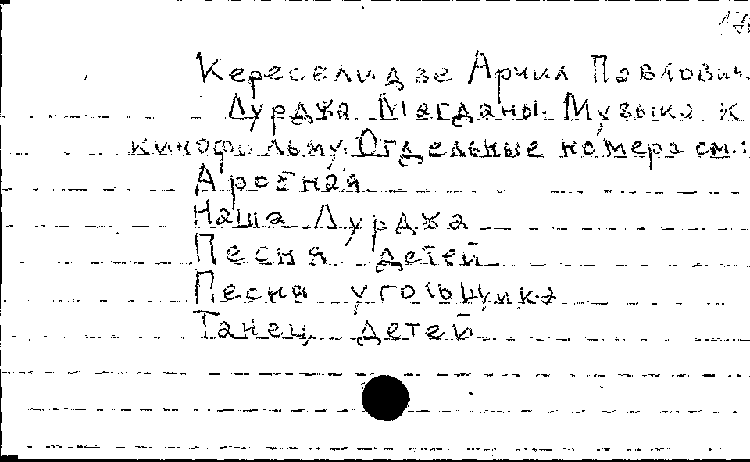 Кереселидзе Арчил Павлович.
Лурджа Магданы. Музыка к
кинофильму. Отдельные номера см.:
Аробная
Наша Лурджа
Песня детей
Песня угольщика
Танец детей